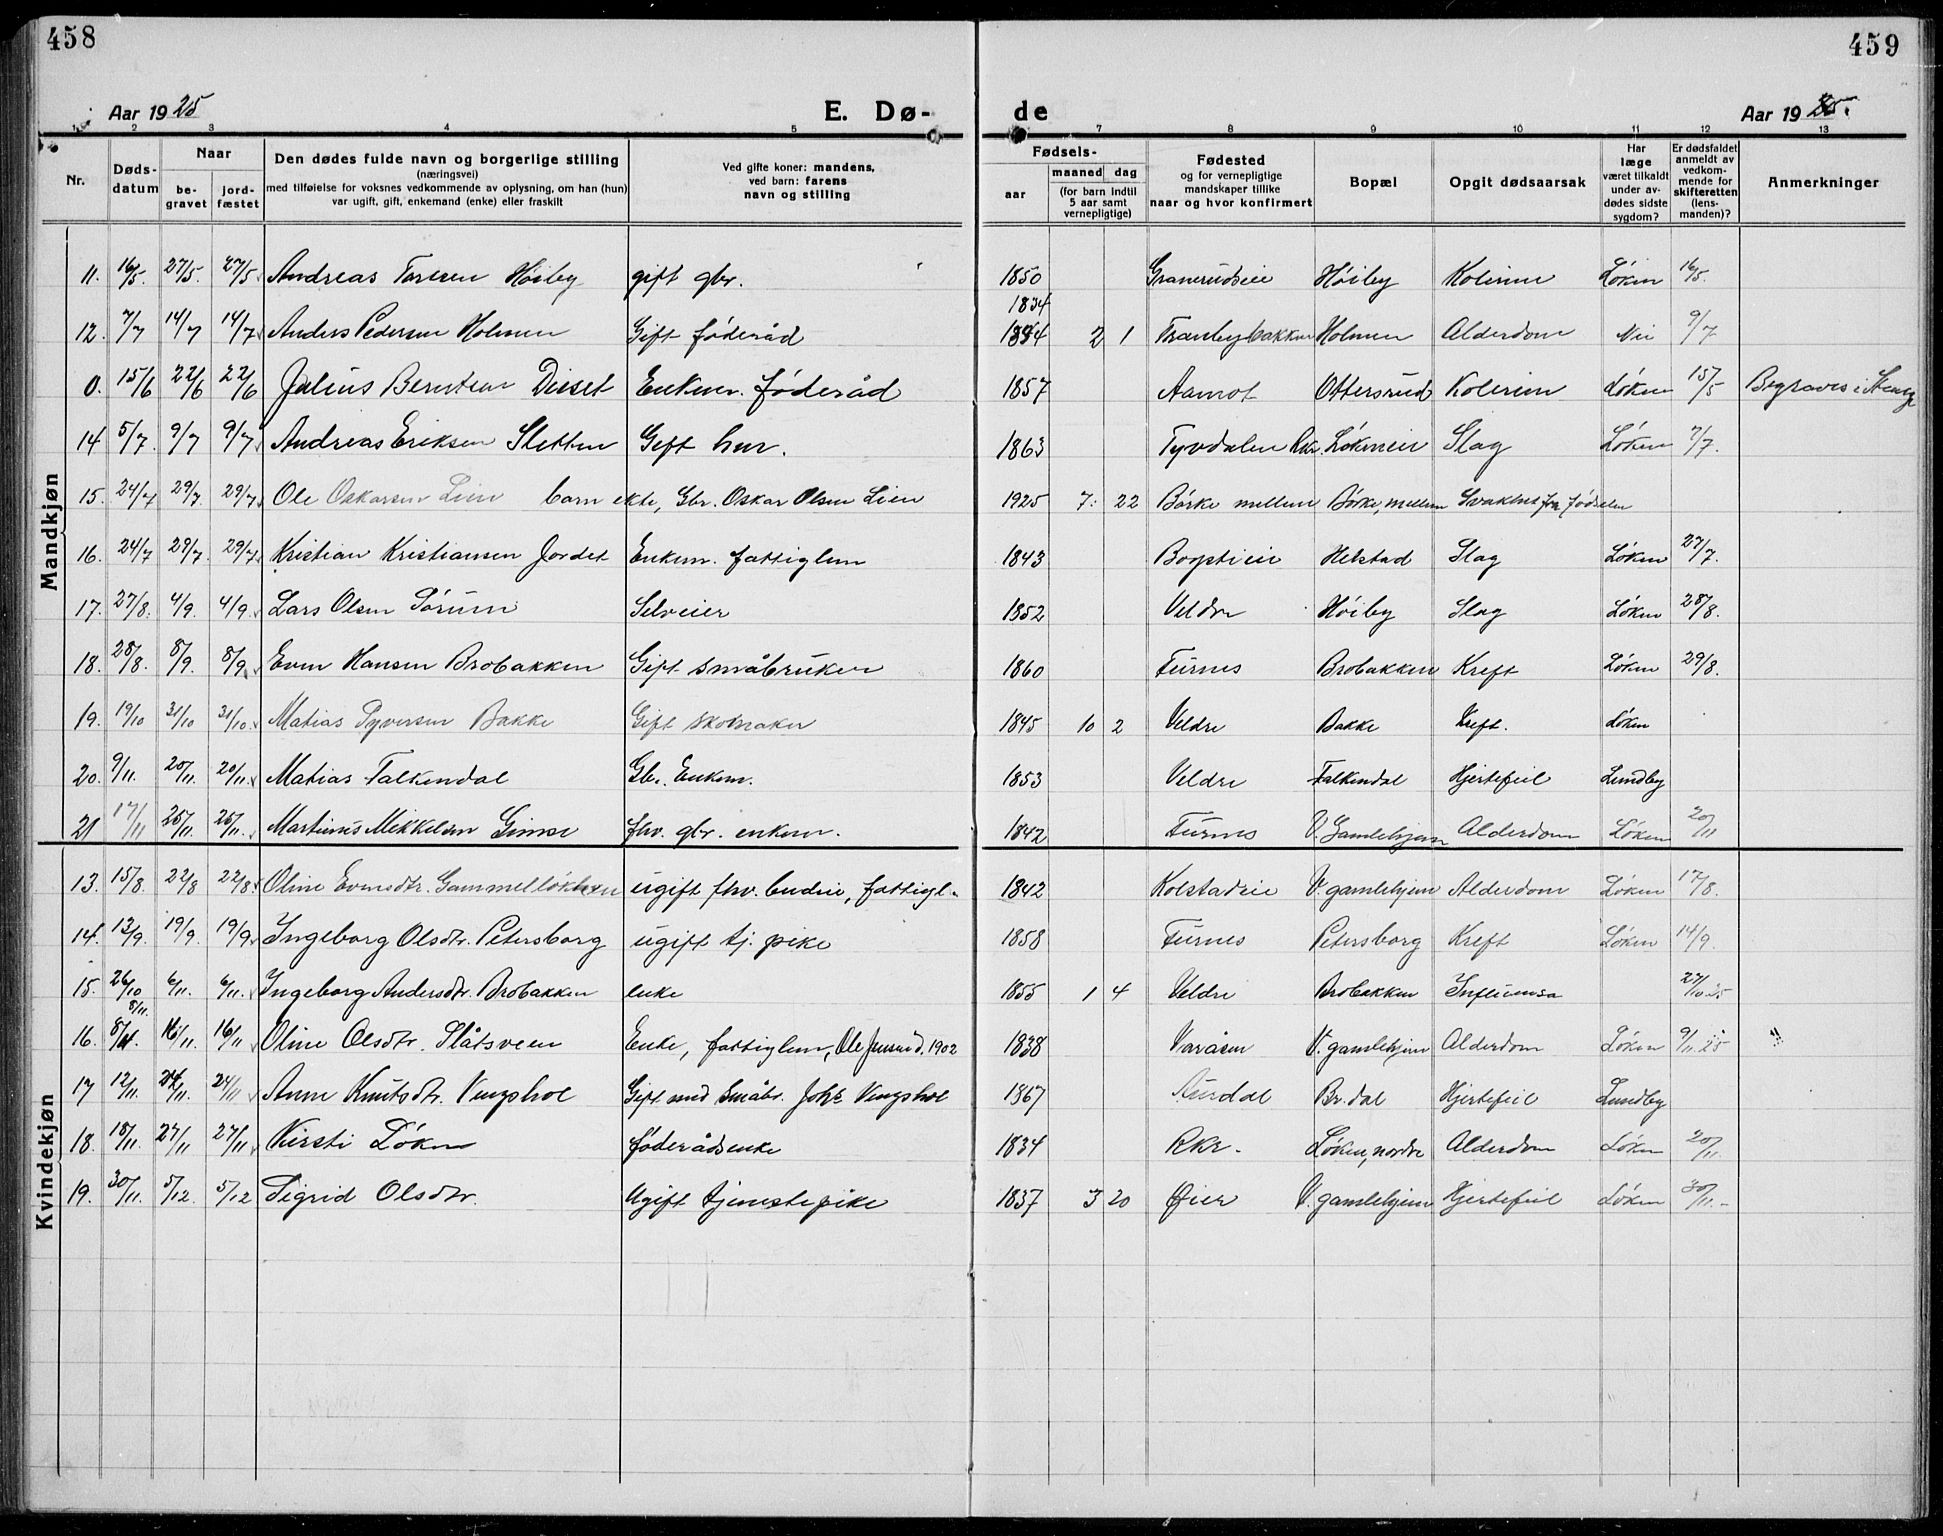 458
459
Aar 1925
E. Dø-
de
Aar 1925.
1 2 3 4 5 7 8 9 10 11 12 13
Nr.
Døds-datum
Naar
be-gravet
jord-fæstet
Den dødes fulde navn og borgerlige stilling
(næringsvei)
med tilføielse for voksnes vedkommende av oplysning, om han (hun)
var ugift, gift, enkemand (enke) eller fraskilt
Ved gifte koner: mandens,
ved barn: farens
navn og stilling
Fødsels-
aar
maaned dag
(for barn indtil
5 aar samt
vernepligtige)
Fødested
og for vernepligtige
mandskaper tillike
naar og hvor konfirmert
Bopæl
Opgit dødsaarsak
Har
læge
været tilkaldt
under av-
dødes sidste
sygdom?
Er dødsfaldet
anmeldt av
vedkom-
mende for
skifteretten
(lens-
manden)?
Anmerkninger
Mandkjøn
11. 16/5. 27/5. 27/5. Andreas Høiby gift gbr. 1850 Granerudseie Høiby Løken 16/5.
1834
12. 7/7 14/7 14/7 Anders Pedersen Holmen Gift føderåd 2 1 Tranbybakken Holmen Alderdom Nei 9/7
0. 15/6 22/6 22/6 Julius Berntsen Diset Enkem. føderåd 1857 Aamot Ottersrud Løken 15/5 Begraves i Stange
14 5/7. 9/7 9/7 Andreas Eriksen Sletten Gift 1863 Tyvdalen Rkr. Løkeneie Slag Løken 7/7.
15. 24/7 29/7 29/7 Ole Oskarsen Lien barn ekte, Gbr. Oskar Olsen Lien 1925 7. 22 Børke mellem Børke, mellem Svakhet fra fødselen
16. 24/7 29/7 29/7 Kristian Kristiansen Jordet Enkem. fattiglem 1843 Helstad Slag Løken 27/7.
17. 27/8. 4/9. 4/9. Lars Olsen Sørum Selveier 1852 Veldre Høiby Slag Løken 28/8.
18. 28/8. 8/9. 8/9. Even Hansen Brobakken Gift småbruker 1860 Furnes Brobakken Kreft Løken 29/8.
19. 19/10 31/10 31/10 Matias Syversen Bakke Gift skomaker 1845 10 2 Veldre Bakke Kreft. Løken
20. 9/11. 20/11. 20/11. Matias Falkendal Gbr. Enkem. 1853 Veldre Falkendal Hjertefeil Lundby
21 17/11 25/11. 25/11. Martinus Mikkelsen Gimse fhv. gbr. enkem. 1842 Furnes V. Gamlehjem Alderdom Løken 20/11
Kvindekjøn
13. 15/8. 22/8 22/8. Oline Evensdtr. Gammelløkken ugift fhv. budeie, fattigl. 1842 Kolstadeie V. gamlehjem Alderdom Løken 17/8.
14. 13/9. 19/9. 19/9. Ingeborg Olsdtr. Petersborg ugift tj. pike 1858 Furnes Petersborg Kreft Løken 14/9.
15. 26/10 6/11. 6/11. Ingeborg Andersdtr. Brobakken enke 1855 1 4 Veldre Brobakken Influensa 27/10 25
8/11.
16. 16/11. 16/11 Oline Olsdtr. Slåtsveen Enke, fattiglem, Ole Jensen d. 1902 1838 Varåsen V. gamlehjem Alderdom Løken 9/11. 25
17 12/11. 24/11. 24/11 Anne Knutsdtr. Vengshol Gift med småbr. Johs Vengshol 1867 Aurdal Br.dal Hjertefeil Lundby
18. 18/11. 27/11 27/11 Kirsti Løken føderådsenke 1834 Rkr. Løken, nordre Alderdom Løken 20/11.
19. 30/11. 5/12. 5/12 Sigrid Olsdtr. Ugift tjenestepike 1837 3 20 Øier V. gamlehjem Hjertefeil Løken 30/11.